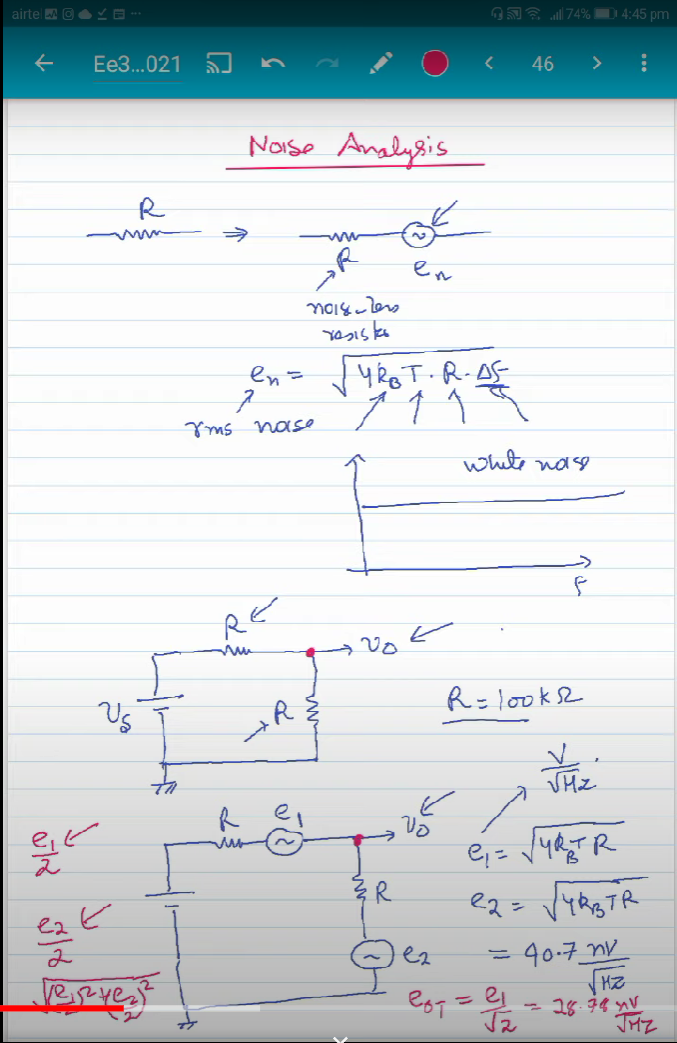 airtel 74% 4:45 pm
Ee3...021 46
Noise Analysis
R
R en
noise-less
resistor
en = √4kBT.R.Δf
rms noise
white noise
F
R vo
vs R R = 100kΩ
V/√Hz
R e1 vo
e1/2 e1 = √4kBTR
R e2 = √4kBTR
e2/2 e2 = 40.7 nV/√Hz
√(e1/2)²+(e2/2)² eoT = e1/√2 = 28.78 nV/√Hz